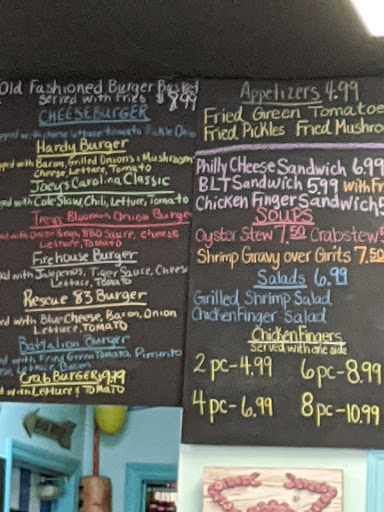 Old Fashioned Burger Basket
Served with Fries $8.99
CHEESEBURGER
with cheese lettuce tomato Pickle Onion
Hardy Burger
with Bacon, Grilled Onions & Mushroom
Cheese, Lettuce, Tomato
Joey's Carolina Classic
with Cole Slaw, Chili, Lettuce, Tomato
Troy's Bloomin Onion Burge
with Onion Rings, BBQ Sauce, cheese
Lettuce, Tomato
Firehouse Burger
with Jalepenos, Tiger Sauce, Cheese
Lettuce, Tomato
Rescue 83 Burger
with Blue Cheese, Bacon, Onion
Lettuce, Tomato
Battalion Burger
with Fried Green Tomato Pimento
Lettuce, Bacon
Crab Burger $9.99
with Lettuce & Tomato
Appetizers 4.99
Fried Green Tomatoe
Fried Pickles Fried Mushro
Philly Cheese Sandwich 6.99
BLT Sandwich 5.99 with Fr
Chicken Finger Sandwich
SOUPS
Oyster Stew 7.50 Crab stew
Shrimp Gravy over Grits 7.50
Salads 6.99
Grilled Shrimp Salad
Chicken Finger Salad
Chicken Fingers
Served with one side
2 pc-4.99 6 pc-8.99
4 pc-6.99 8 pc-10.99